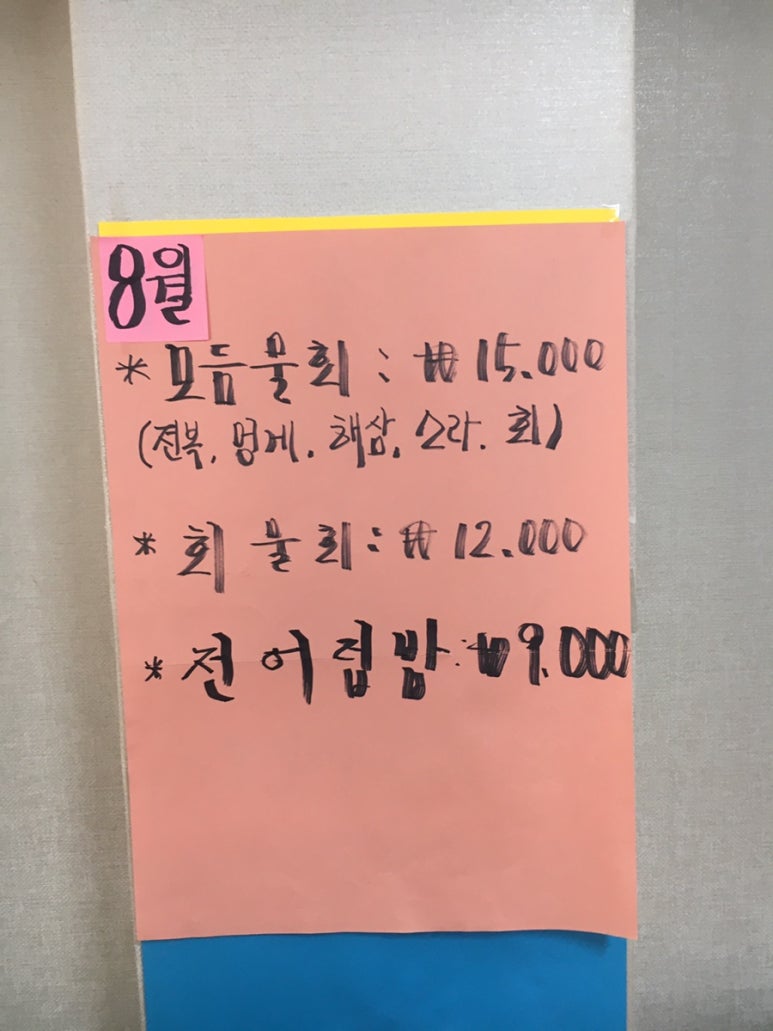 8월
* 모듬물회 : ₩ 15.000
(전복, 멍게, 해삼, 소라. 회)
* 회 물회 : ₩ 12.000
* 전어접밥 : ₩9.000